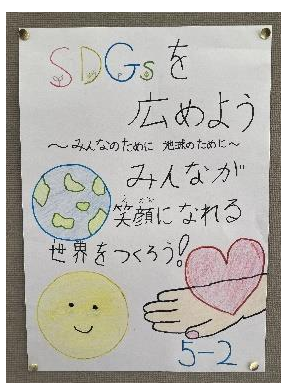 SDGsを
広めよう
〜みんなのために 地球のために〜
みんなが
笑顔になれる
世界をつくろう!
5-2